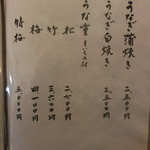 うなぎ蒲焼き 二、五〇〇円
うなぎ白焼き 二、五〇〇円
うな重 きも吸付
松 二、七〇〇円
竹 三、六〇〇円
梅 四、一〇〇円
特梅 五、〇〇〇円